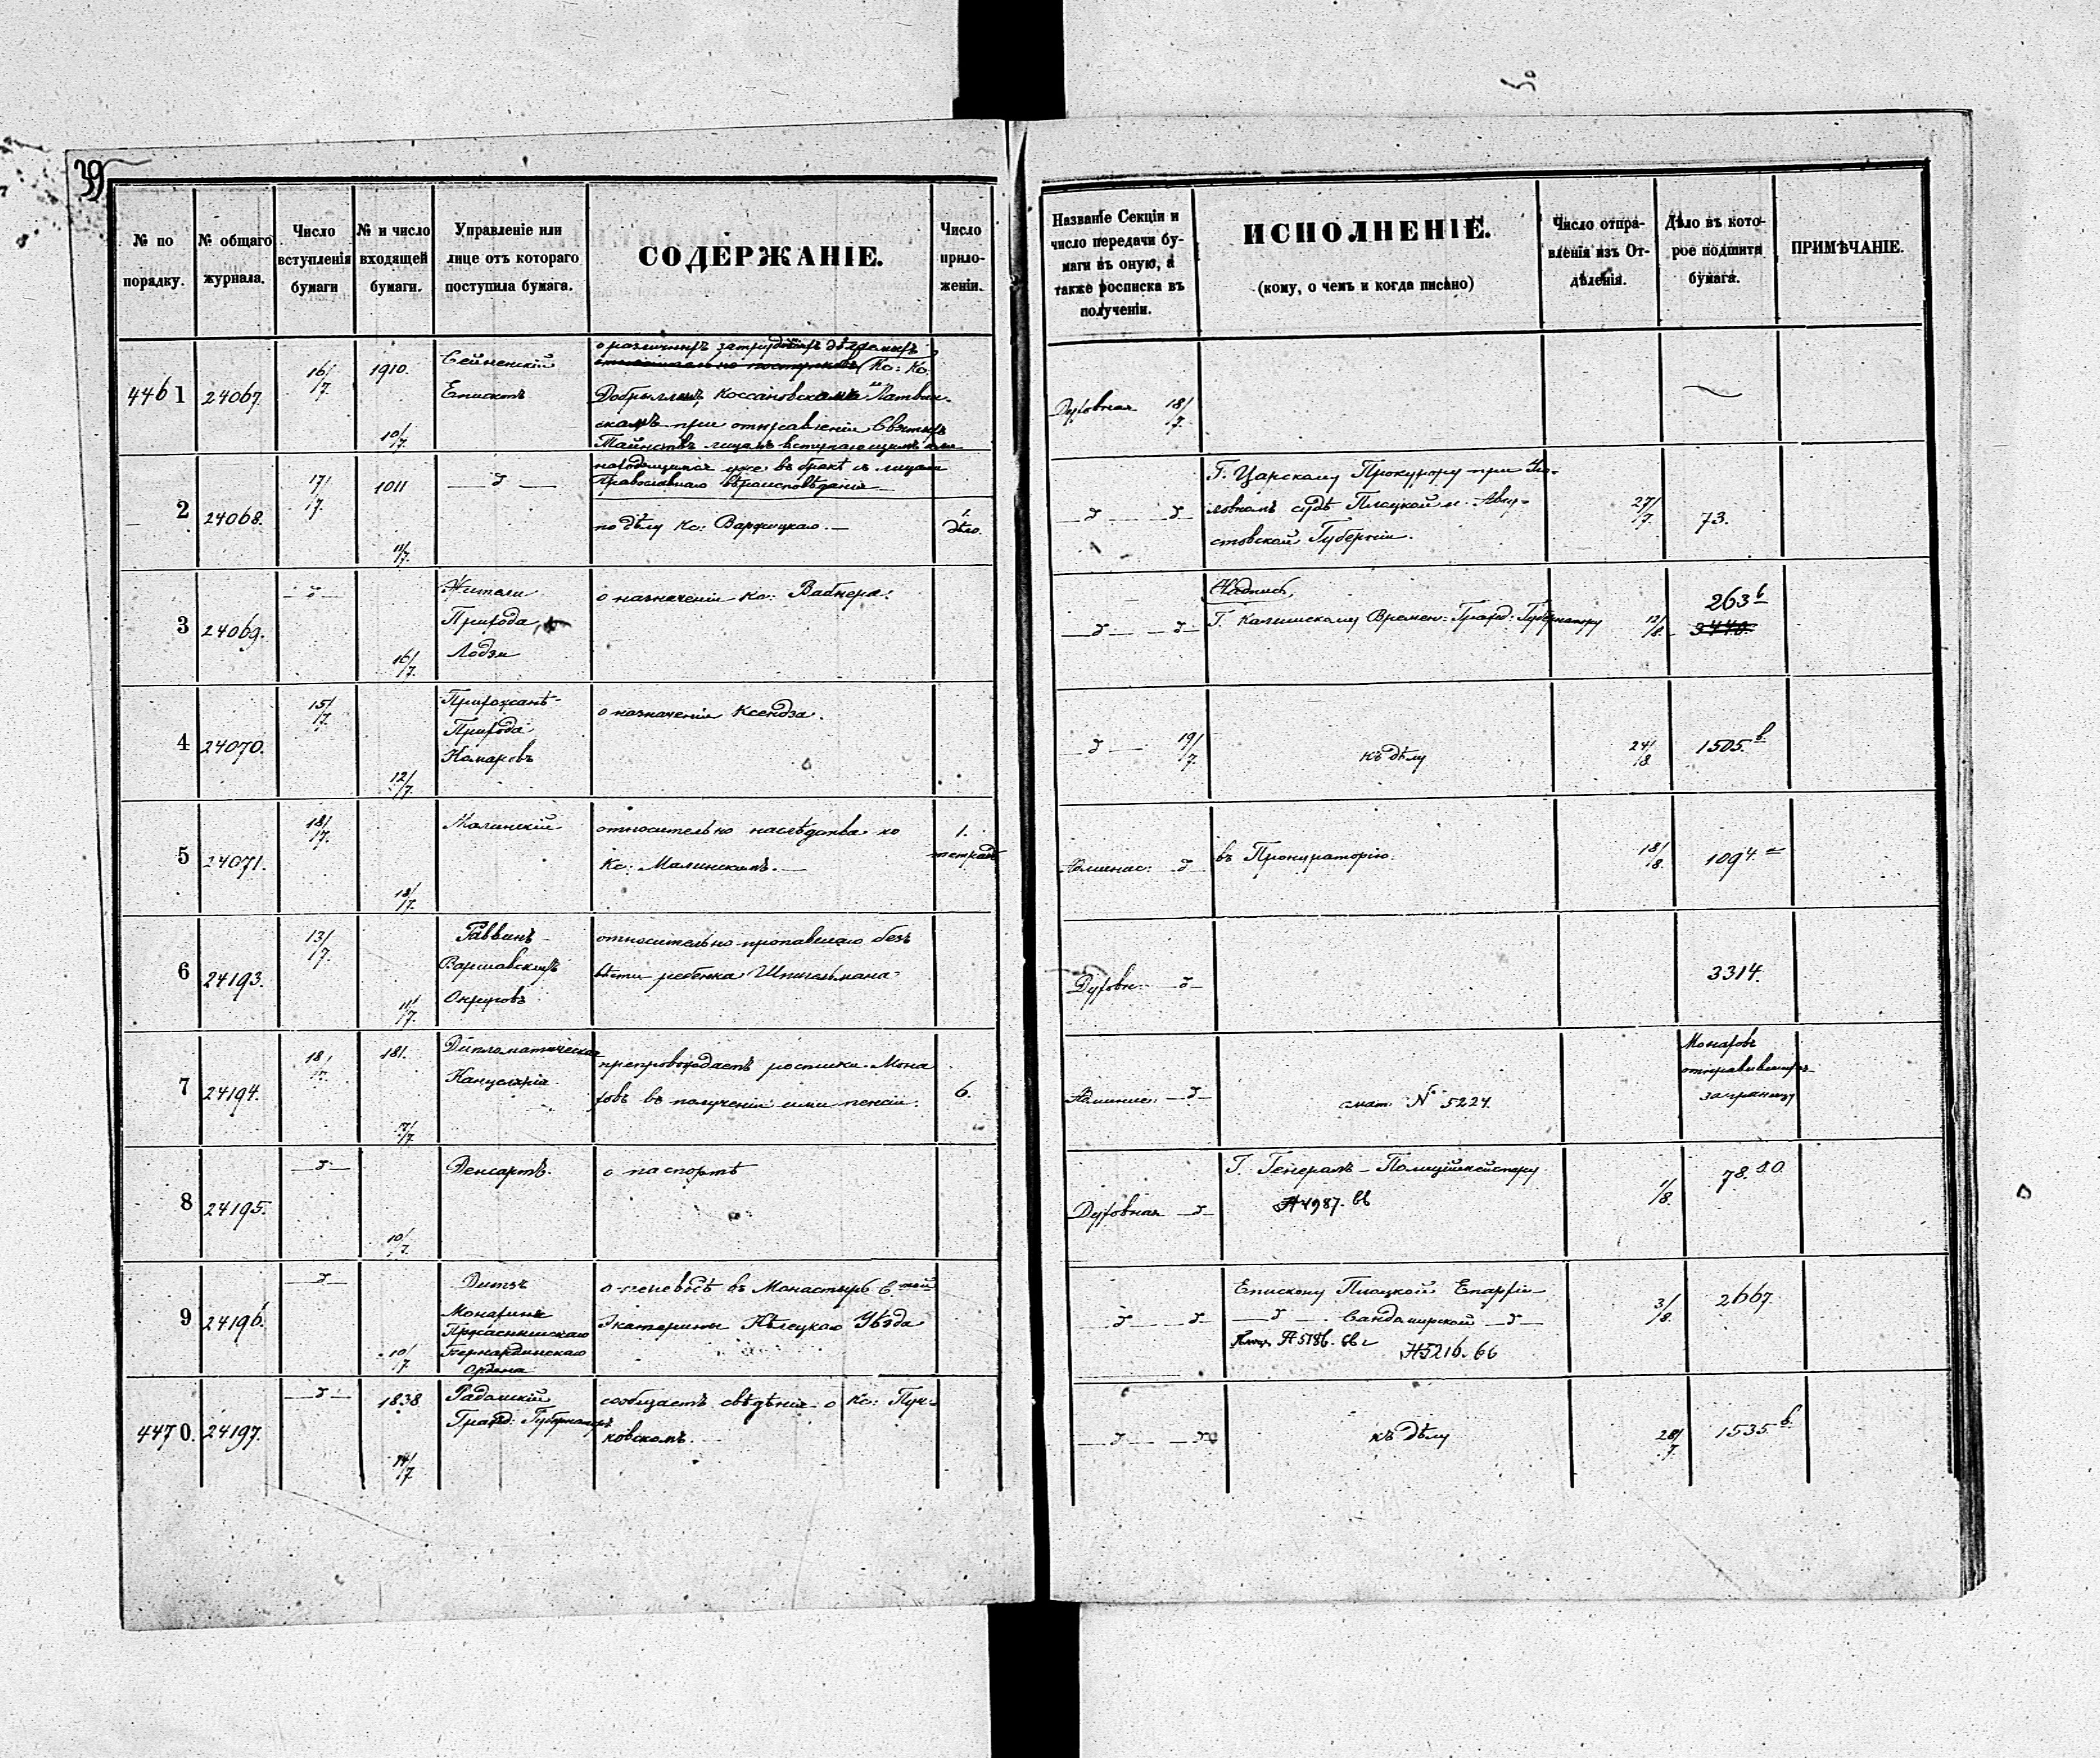 39
№ по порядку.
№ общаго журнала.
Число вступленія бумаги
№ и число входящей бумаги.
Управленіе или лице отъ котораго поступила бумага.
СОДЕРЖАНІЕ.
Число приложеніи.
Названіе Секціи и число передачи бумаги въ оную, а также росписка въ полученіи.
ИСПОЛНЕНІЕ.
(кому, о чемъ и когда писано)
Число отправленія изъ Отдѣленія.
Дѣло въ которое подшита бумага.
ПРИМѢЧАНІЕ.
4461
24067.
16/7.
1910.
10/7.
Сейненскій
Епископъ
о различныхъ
Кс: Кс.
при отправленіи Святыхъ
Таинствъ лицамъ вступающимъ или
находящимся уже въ бракѣ съ лицами
Православнаго вѣроисповѣданія
Духовная 18/7.
2
24068.
17/7.
1011
11/7.
по дѣлу Кс:
1. дѣло.
Г. Царскому Прокурору при Уго-
ловномъ судѣ Плоцкой и Авгу-
стовской Губерніи.
27/7.
73.
3
24069.
16/7.
Жители
Прихода
Лодзи
о назначеніи Кс: Вабнера.
Надпись,
Г. Калишскому Времен: Гражд: Губернатору
12/8.
263 в
4
24070.
15/7.
12/7.
Прихожанѣ
Прихода
Комаровъ
о назначеніи Ксендза.
19/7.
къ дѣлу
24/8.
1505. в
5
24071.
18/7.
18/7.
Малинскій
относительно наслѣдства по
Кс: Малинскомъ.
1.
тетрадь
въ Прокураторію.
18/8.
1094.
6
24193.
13/7.
11/7.
Раввинъ
Варшавскихъ
Округовъ
относительно пропавшаго безъ
вѣсти ребенка Шпигельмана
Духовн:
3314.
7
24194.
18/7.
181.
17/7.
Дипломатическая
Канцелярія
препровождаетъ росписки Мона
ховъ въ полученіи ими пенсіи.
6.
Админис:
смот. № 5224.
Монаховъ
отправившихъ
заграницу
8
24195.
10/7.
о паспортѣ
Духовная
Г. Генералъ-Полиціймейстеру
№ 4987. вв
1/8.
78.
9
24196.
10/7.
Монахиня
Бернардинскаго
Ордена
о переводѣ въ Монастырь С.той
Екатерины Кѣлецкаго Уѣзда
Епископу Плоцкой Епархіи
Сандомирской
№ 5186. вв
№ 5216. вв
3/8.
2667
4470.
24197.
1838
14/7.
Радомскій
Гражд: Губернаторъ
сообщаетъ свѣдѣнія о Кс: Пуч-
ковскомъ.
къ дѣлу
28/7.
1535. в